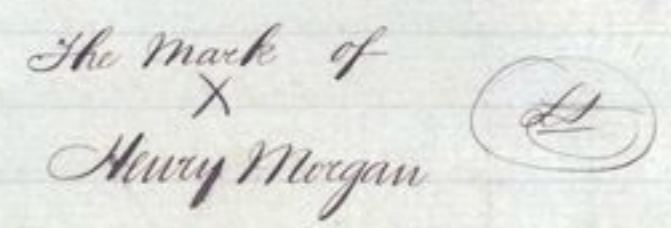 The Mark of
X
Henry Morgan
LS